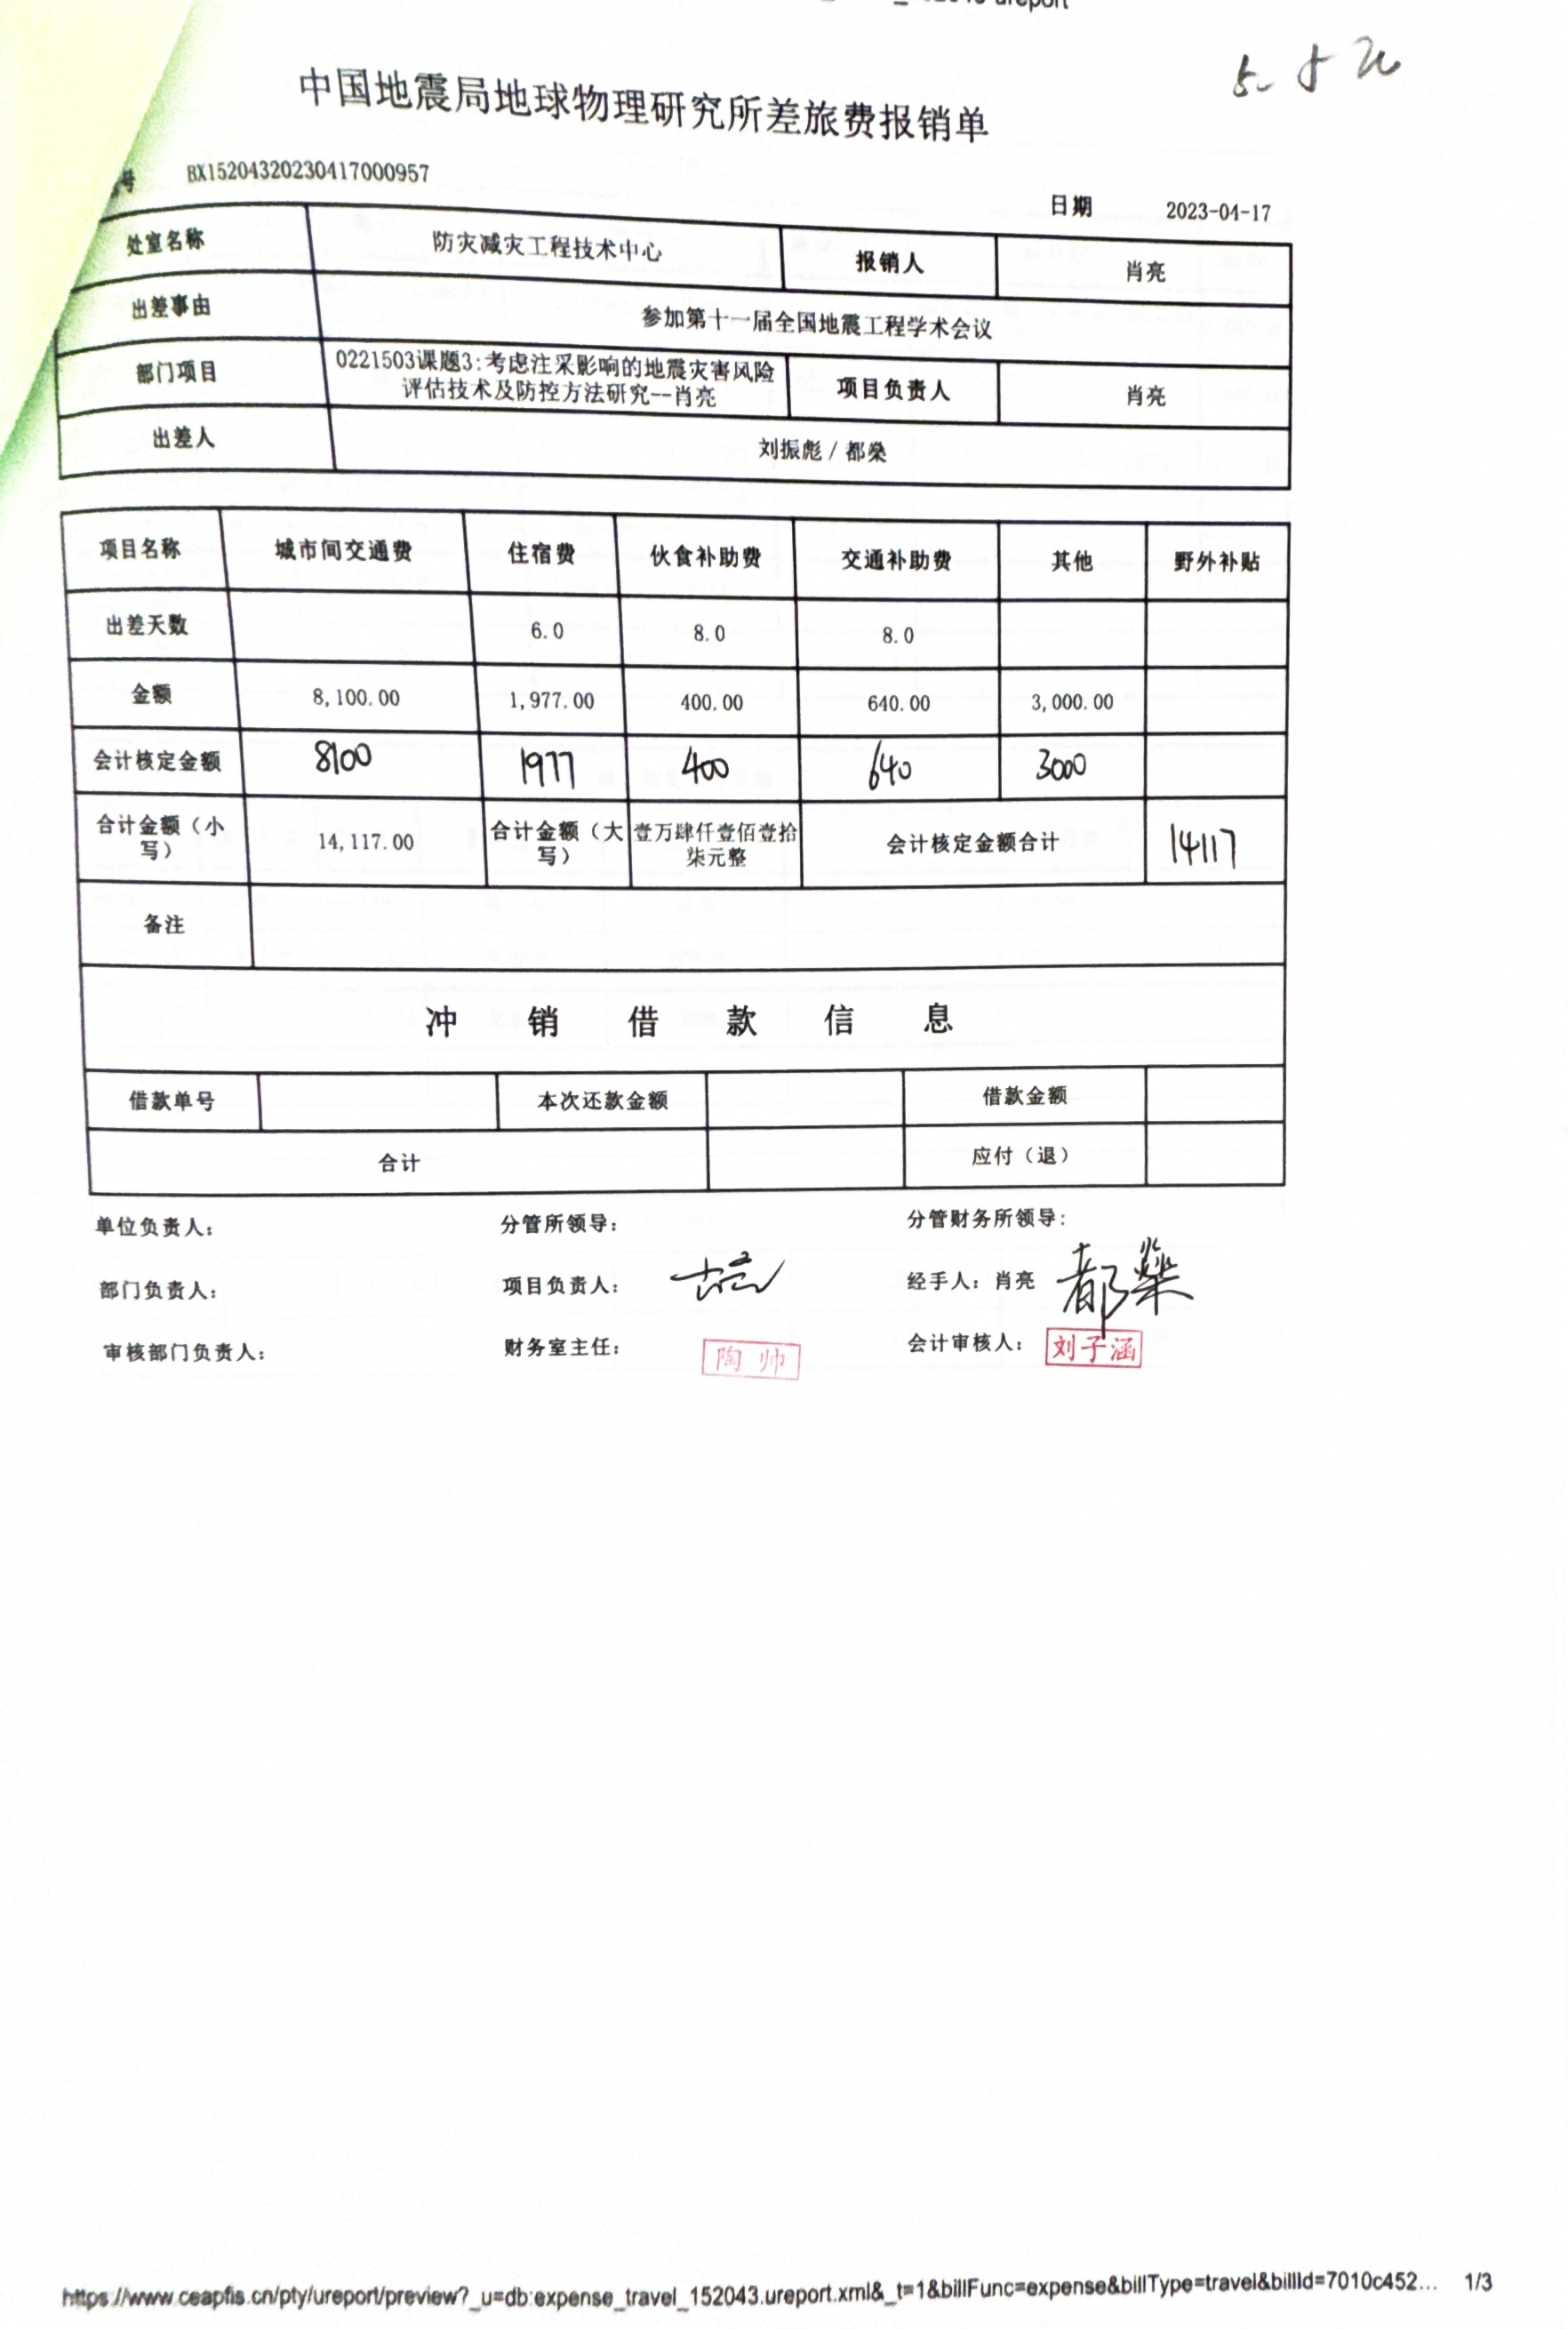 中国地震局地球物理研究所差旅费报销单
号 BX15204320230417000957
日期 2023-04-17
处室名称 防灾减灾工程技术中心 报销人 肖亮
出差事由 参加第十一届全国地震工程学术会议
部门项目 0221503课题3:考虑注采影响的地震灾害风险
评估技术及防控方法研究--肖亮 项目负责人 肖亮
出差人 刘振彪 / 都燊
项目名称 城市间交通费 住宿费 伙食补助费 交通补助费 其他 野外补贴
出差天数 6.0 8.0 8.0
金额 8,100.00 1,977.00 400.00 640.00 3,000.00
会计核定金额 8100 1977 400 640 3000
合计金额（小
写） 14,117.00 合计金额（大
写） 壹万肆仟壹佰壹拾
柒元整 会计核定金额合计 14117
备注
冲 销 借 款 信 息
借款单号 本次还款金额 借款金额
合计 应付（退）
单位负责人: 分管所领导: 分管财务所领导:
部门负责人: 项目负责人: 经手人: 肖亮 都燊
审核部门负责人: 财务室主任: 陶帅 会计审核人: 刘子涵
https://www.ceapfis.cn/pty/ureport/preview?_u=db:expense_travel_152043.ureport.xml&_t=1&billFunc=expense&billType=travel&billId=7010c452... 1/3